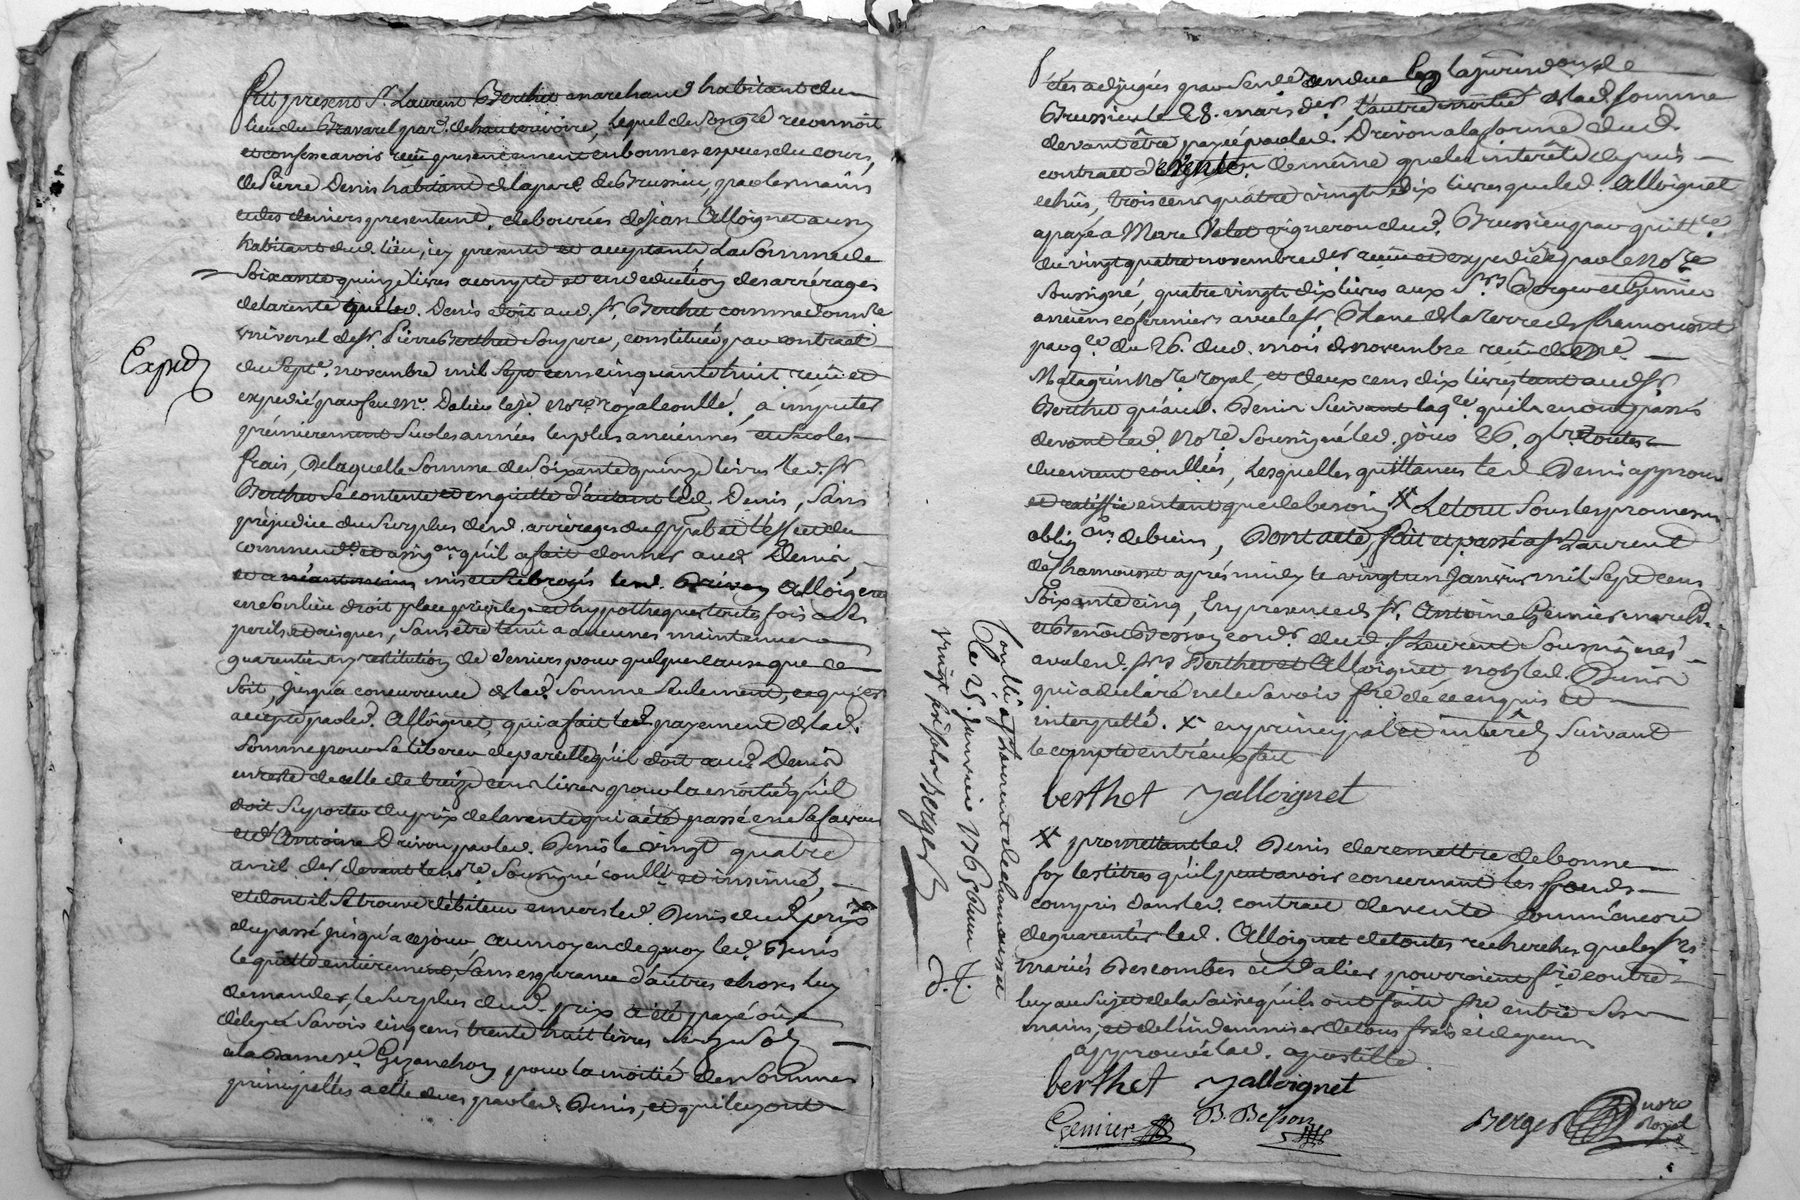 Fut present Sr. Laurent Berthet marchand habitant du
lieu du Bravarel par. de hauterivoire, lequel de son gré reconnoit
et confesse avoir reçu presentement en bonnes especes du cours,
de Pierre Denis habitant de la par. de Brussieu, par les mains
et des deniers presentement deboursés de Jean Alloignet aussy
habitant dud. lieu, icy present et acceptant La somme de
soixante quinze livres acompte et en deduction des arrérages
de la rente que led. Denis doit aud. Sr. Berthet comme donre.
universel de Sr. Pierre Berthet son pere, constituée par contract
du sept. novembre mil sept cens cinquante huit reçu et
Expedié
expedié par feu Me. Dalier le je. Nore. royal conllé. a imputer
prémierement sur les années les plus anciénnes et sur les
frais, De laquelle somme de soixante quinze livres led. Sr
Berthet se contente et en quitte d'autant led. Denis, sans
préjudice du surplus desd. arrérages du ppal et l'effet du
commendt. et assigon. qu'il a fait donner aud. Denis,
et a néantmoins mis et subrogés led. Alloignet
en son lieu droit place privilege et hypotheques toutes fois a ses
perils et risques, sans être tenu a aucunes maintenue
guarentie ny restitution de deniers pour quelque cause que ce
soit, jusqu'a concurrence de lad. somme seulement, ce qui est
accepté par led. Alloignet, qui a fait led. payement de lad.
somme pour se liberer de pareille qu'il doit aud. Denis
en reste de celle de treize cens livres pour la moitié qu'il
doit suporter du prix de la vente qui a été passé en sa faveur
et d'Antoine Drivon par led. Denis le vingt quatre
avril der. devant le nore. soussigné conllé et insinué,
et dont il se trouve débiteur envers led. Denis dud. prix
du passé jusqu'a ce jour, au moyen de quoy led. Denis
le quitte entierement sans esperance d'autres choses luy
demander, le surplus dud. prix a été payé ou
délegué savoir cinq cens trente huit livres
a la Dame Gizanchon pour la moitié des sommes
principalles a elle dues par led. Denis, et qui luy ont
étés adjugés par sentce rendue en la jurisdon. de
Brussieu le 28. mars der, l'autre moitié de lad. somme
devant être payée par led. Drivon a la forme dud.
contract de vente, de même que les interêts depuis
echus, trois cens quatre vingt dix livres que led. Alloignet
a payé a Marc Valet vigneron dud. Brussieu par quittce.
du vingt quatre novembre der reçue et expediée par le Nore
soussigné, quatre vingt dix livres aux Srs Berger et Gemier
anciens cofermiers avec le Sr. Blanc de la terre de St framouset
par qce du 26. dud. mois de novembre reçue de Me.
Matagrin Nore royal, et deux cens dix livres tant aud. Sr
Berthet qu'aud. Denis suivant la qce. qu'ils en ont passés
devant led. Nore soussigné led. jour 26. 9bre toutes
duement conllées, lesquelles quittances led. Denis approuve
et ratiffie entant que de besoin # Le tout sous les promesses
obligons. de biens, Dont acte, fait et passé a St Laurent
de Chamousset aprés midy le vingt un Janvier mil sept cens
soixante cinq, En presence de Sr. Antoine Gemier march.
et Benoit Besson cordr. dud. St Laurent soussignés
avec led. Srs Berthet et Alloignet, non led. Denis
qui a declaré ne le savoir fre. de ce enquis et
interpellé. x en principal et interêts suivant
le compte entr'eux fait
berthet J alloignet
# promettant led. Denis de remettre de bonne
foy les titres qu'il peut avoir concernant les fonds
compris dans led. contract de vente comme encore
de guarentir led. Alloignet de toutes recherches que les srs
mariés Descombes et Dalier pourroient fre contre
luy au sujet de la saisie qu'ils ont faite fre entre ses
mains, et de l'indemniser de tous frais et depens
approuvé lad. apostille.
berthet J alloignet
Gemier B. Besson Berger nore royal
Conllé a St laurent de chamousset
le 25. janvier 1765 reçu
vingt six sols Berger